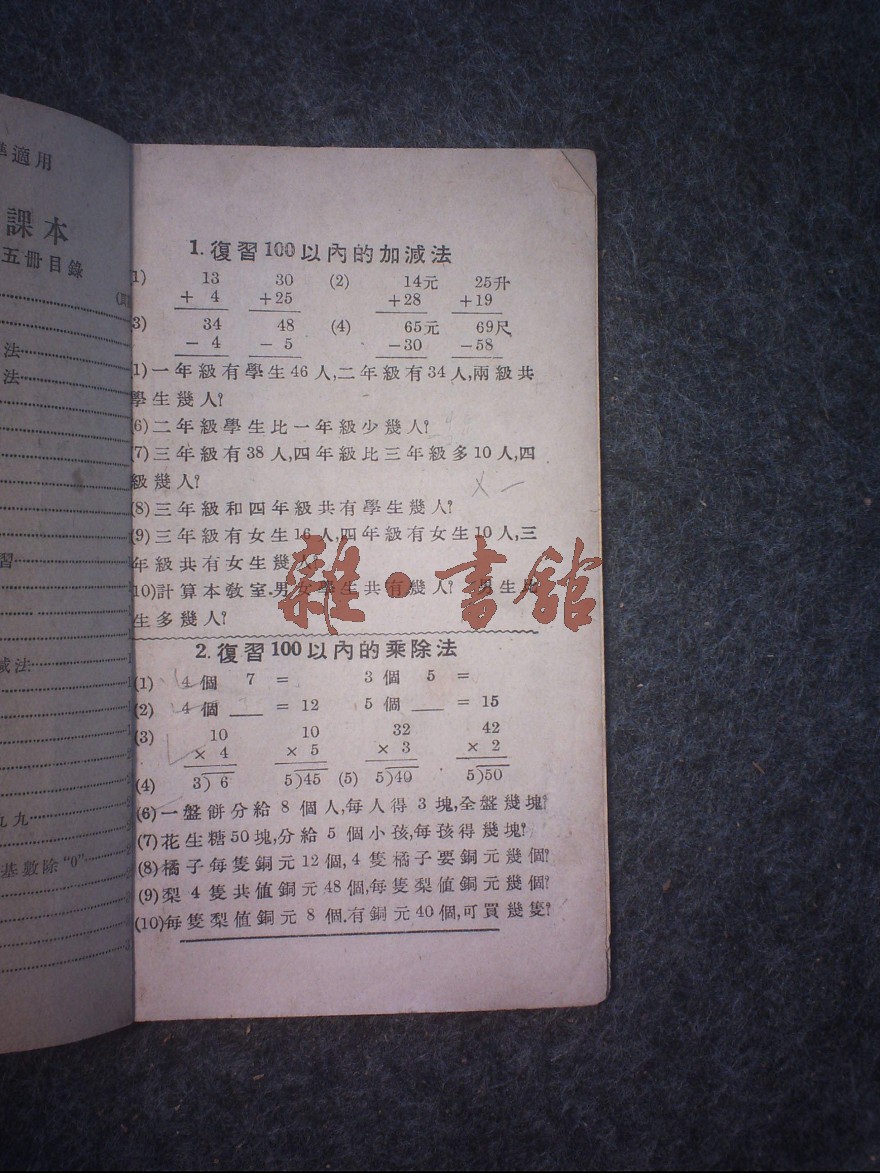 準適用
課本
五冊目錄
法
法
習
減法
九九
基數除“0”
1. 復習100以內的加減法
1) 13 30 (2) 14元 25升
+ 4 +25 +28 +19
3) 34 48 (4) 65元 69尺
- 4 - 5 -30 -58
1)一年級有學生46人,二年級有34人,兩級共
學生幾人?
(6)二年級學生比一年級少幾人?
(7)三年級有38人,四年級比三年級多10人,四
級幾人?
(8)三年級和四年級共有學生幾人?
(9)三年級有女生16人,四年級有女生10人,三
年級共有女生幾人?
10)計算本教室.男女學生共有幾人? 男生比
生多幾人?
雜·書館
2. 復習100以內的乘除法
(1) 4個 7 = 3個 5 =
(2) 4個 __ = 12 5個 __ = 15
(3) 10 10 32 42
× 4 × 5 × 3 × 2
(4) 3)6 5)45 (5) 5)40 5)50
(6)一盤餅分給8個人,每人得3塊,全盤幾塊?
(7)花生糖50塊,分給5個小孩,每孩得幾塊?
(8)橘子每隻銅元12個,4隻橘子要銅元幾個?
(9)梨4隻共值銅元48個,每隻梨值銅元幾個?
(10)每隻梨值銅元8個.有銅元40個,可買幾隻?